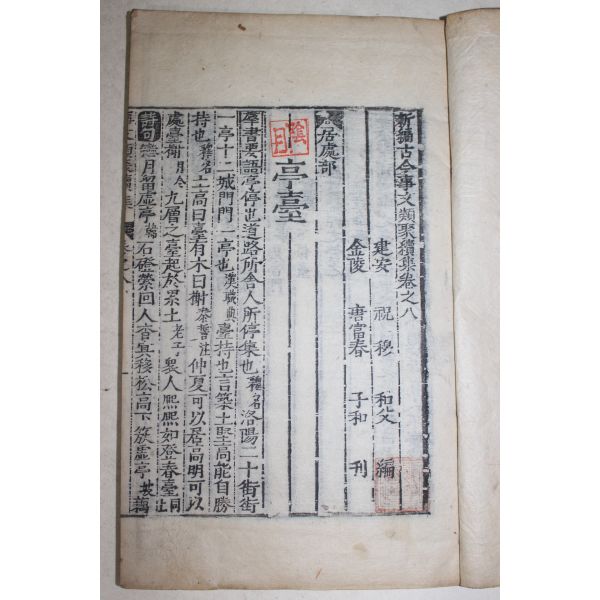 新編古今事文類聚續集卷之八
建安 祝穆 和父 編
金陵 唐富春 子和 刊
居處部
陰月
亭臺
羣書要語亭停也道路所舍人所停集也釋名洛陽二十街街
一亭十二城門門一亭也漢職典臺持也言築土堅高能自勝
持也釋名土高曰臺有木曰榭泰誓注仲夏可以居高明可以
處臺榭月令九層之臺起於累土老子衆人熙熙如登春臺同上
詩句 月留虛亭 石磴縈回人杳冥移松高下放虛亭